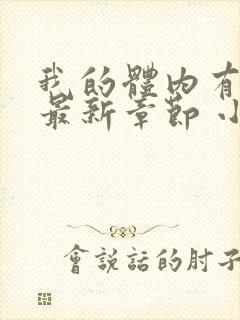 我的體內有
最新章節 小
會說話的肘子